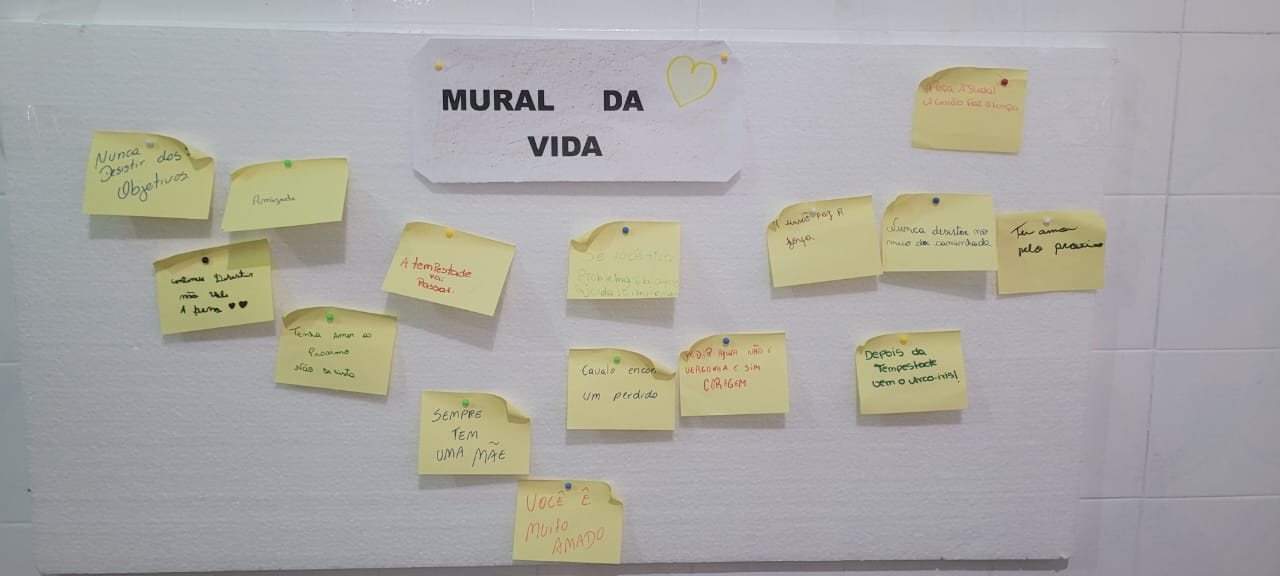 MURAL DA
VIDA
Peça AJuda!
A união faz a força
Nunca
Desistir dos
Objetivos
Amizade
continue Desistir
não vale
A pena
Tenha Amor ao
Proximo
Não
A tempestade
vai
Passar.
SEMPRE
TEM
UMA MÃE
VOCÊ É
Muito
AMADO
Se você tiver
Problemas
Cavalo encon
um perdido
PEDIR AJUDA NÃO É
VERGONHA E SIM
CORAGEM
A união faz A
força
Nunca desistir no
meio da caminhada
Ter amor
pelo proximo
DEPOIS DA
TEMPESTADE
VEM O Arco-iris!